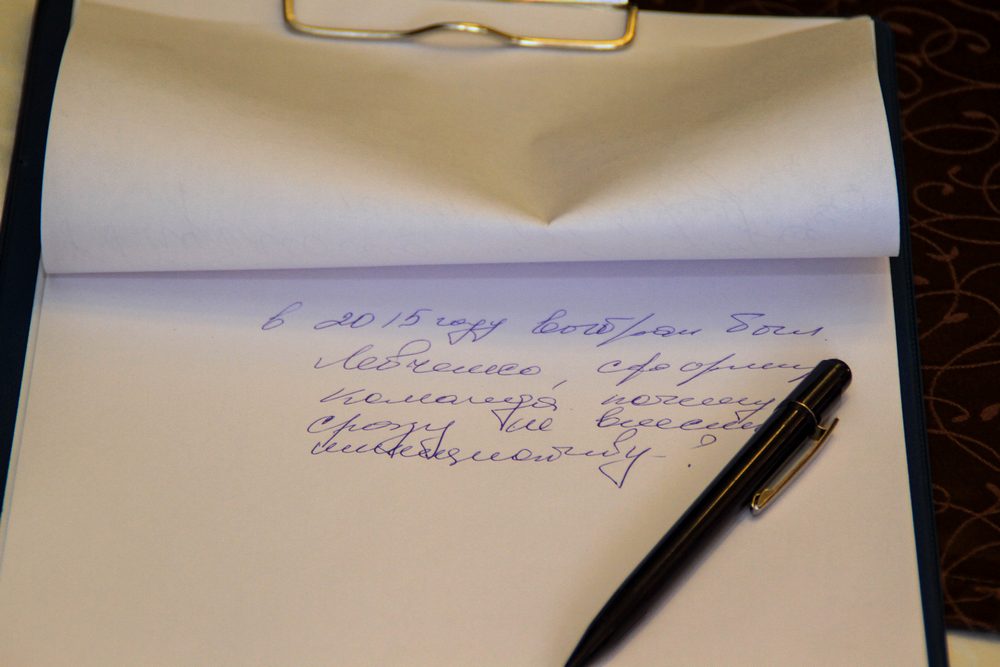 в 2015 году выбран был
Левченко, сформир
команда, почему
сразу не внести
инициативу?